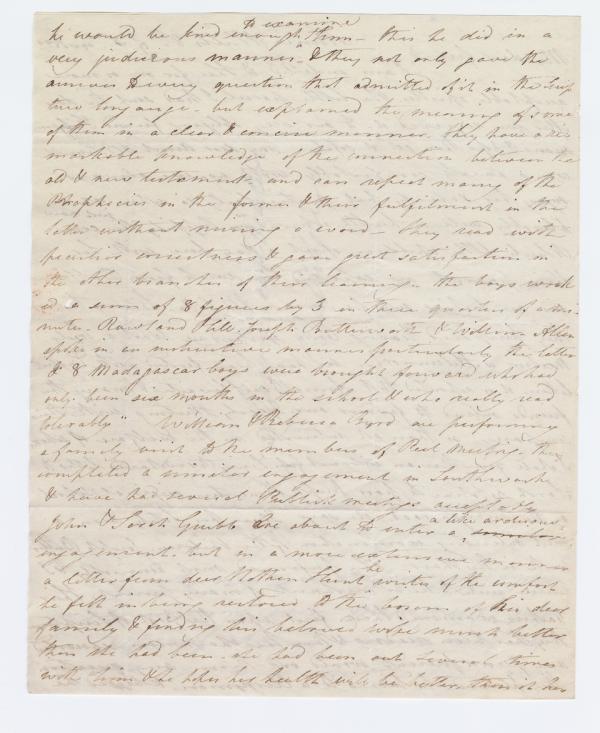 to examine
he would be kind enough them – this he did in a
very judicious manner & they not only gave the
answer to every question that admitted of it in the Scrip
ture language – but explained the meaning of some
of them in a clear & concise manner. They have a re
markable knowledge of the connection between the
old & new testament – and can repeat many of the
Prophecies in the former & their fulfilment in the
latter without missing a word – they read with
peculiar correctness & gave great satisfaction in
the other branches of their learning – the boys work
ed a sum of 8 figures by 3 in three quarters of a mi
nute – Rowland Hill, Joseph Butterworth & William Allen
spoke in an instructive manner particularly the latter
& 8 Madagascar boys were brought forward who had
only been six months in the school & who really read
tolerably" William & Rebecca Byrd are performing
a family visit to the members of Peel Meeting – they
completed a similar engagement in Southwark
& have had several Publick meetings acceptably
John & Sarah Grubb are about to enter a like arduous
engagement – but in a more extensive manner
a letter from dear Nathan Hunt he writes of the comfort
he felt in being restored to the bosom of his dear
family & finding his beloved wife much better
than she had been – she had been out several times
with him & he hopes her health will be better than it has